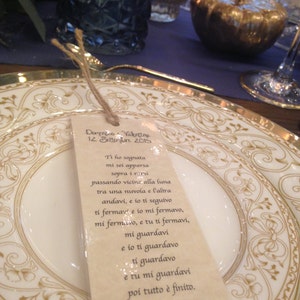 12 Settembre 2015
Ti ho sognato
mi sei apparsa
sopra i
passando vicino alla luna
tra una nuvola e l'altra
andavi, e io ti seguivo
ti fermavi, e io mi fermavo,
mi fermavo, e tu ti fermavi,
mi guardavi
e io ti guardavo
ti guardavo
e tu mi guardavi
poi tutto è finito.